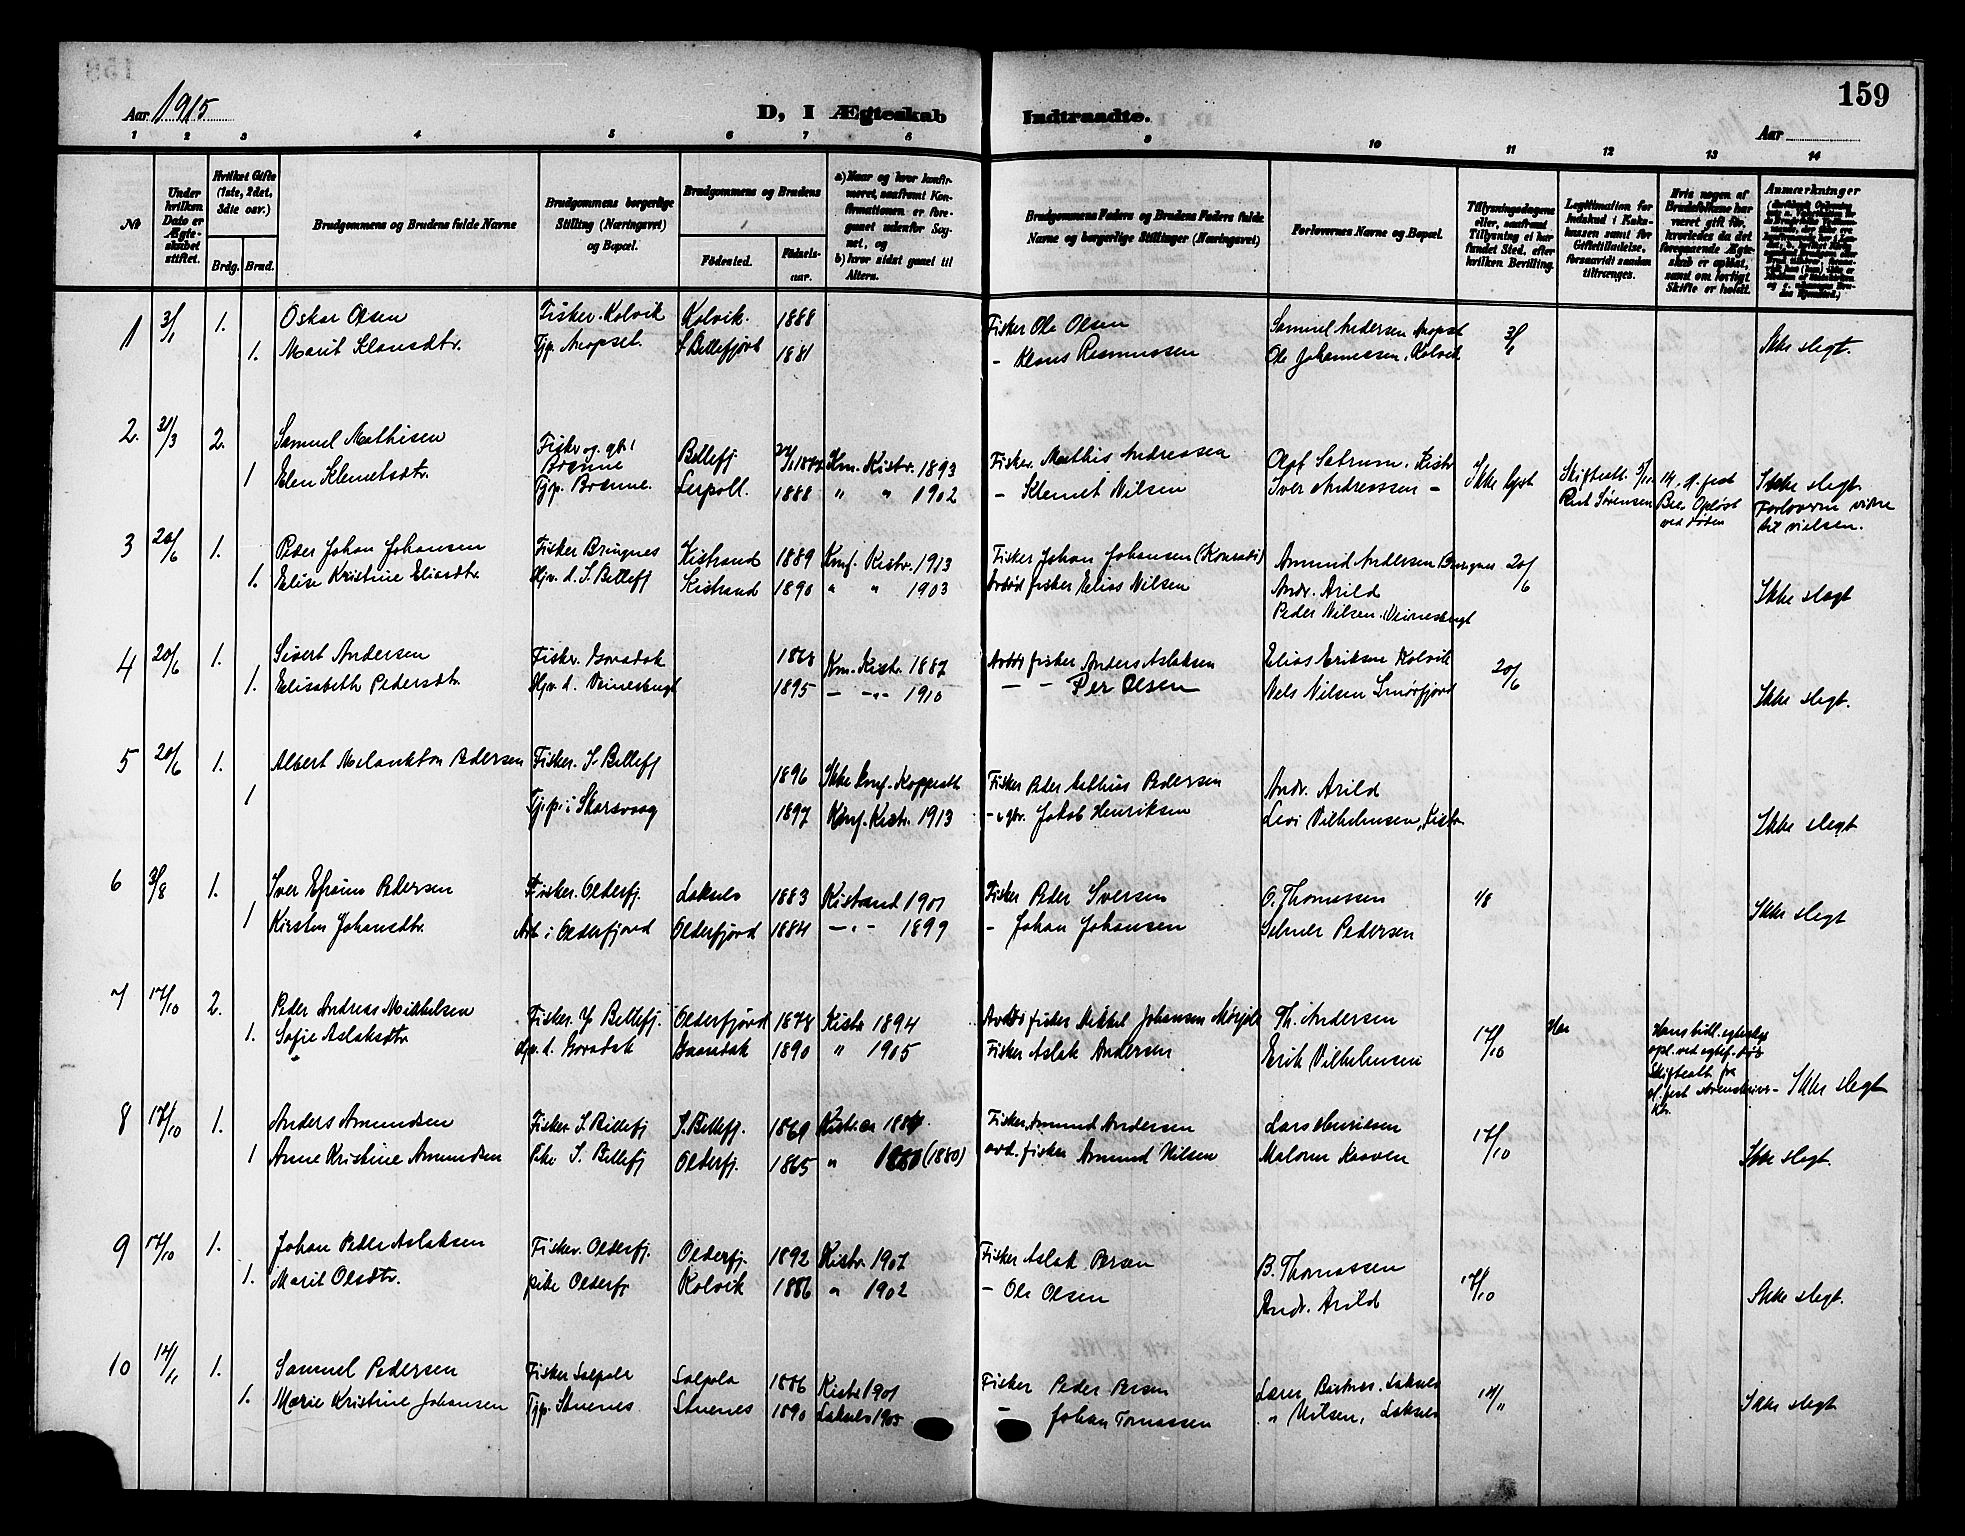 159
Aar 1915
D, I Ægteskab Indtraadte.
Aar
1 2 3 4 5 6 7 8 9 10 11 12 13 14
№
Under hvilken Dato er Ægteskabet stiftet.
Hvilket Gifte (1ste, 2det, 3die osv.)
Brdg. Brud.
Brudgommens og Brudens fulde Navne
Brudgommens borgerlige Stilling (Næringsvei) og Bopæl.
Brudgommens og Brudens
Fødested.
Fødselsaar.
a) Naar og hvor konfirmeret, saafremt Konfirmationen er foregaaet udenfor Sognet, og
b) hvor sidst gaaet til Alters.
Brudgommens Faders og Brudens Faders fulde Navne og borgerlige Stillinger (Næringsvei)
Forlovernes Navne og Bopæl.
Tillysningsdagene eller, saafremt Tillysning ei har fundet Sted, efter hvilken Bevilling.
Legitimation for Indskud i Enkekassen samt for Giftetilladelse, forsaavidt saadan tiltrænges.
Hvis nogen af Brudefolkene har været gift før, hvorledes da det foregaaende Ægteskab er opløst, samt om lovligt Skifte er holdt.
Anmærkninger
1 3/1 1. Oskar Olsen Fisker. Kolvik Kolvik. 1888 Fisker Ole Olsen Samuel Andersen Aropset 3/1
1. Marit Klausdtr. Tjp. Aropset. S Billefjord 1881 - Klaus Rasmussen Ole Johannessen, Kolvik Ikke slegt.
2. 31/3 2. Samuel Mathisen Fisker og gbr Brenne Billefj. Knf. Kistr. 1893 Fisker. Mathis Andreassen Olaf Sætrum. Kistr Ikke lyst Skifteatt.
1 Elen Klemetsdtr. Tjp. Brenne. Lerpoll. 1888 " " 1902 - Klemet Nilsen Iver Andreassen - Ikke slegt.
Opløst ved døden
Forloverne vidne til vielsen.
3 20/6 1. Peder Johan Johansen Fisker Bringnes Kistrand 1889 Knf. Kistr. 1913 Fisker Johan Johansen (Konradi) Amund Andersen Bringnes 20/6
1. Elise Kristine Eliasdtr. Hjv. d. S. Billefj Kistrand 1890 " " 1903 Avdød fisker Elias Nilsen Andr. Arild Ikke slegt
Peder Nilsen. Veinesbugt
4 20/6 1. Sivert Andersen Fisker. 1868 Knf. Kistr. 1887 Avdød fisker Anders Aslaksen Elias Eriksen Kolvik 20/6
1. Elisabeth Pedersdtr. Hjv. d. Veinesbugt 1895 - -"- 1910 - - Per Olsen Nels Nilsen Smørfjord Ikke slegt.
5 20/6 1. Albert Melankton Pedersen Fisker. S. Billefj 1896 Ikke knf. Koppeatt Fisker Peder Pedersen Andr. Arild
1 Tjp. i Skarsvaag 1897 Knf. Kistr. 1913 - gbr. Jakob Henriksen Levi Vilhelmsen, Kistr. Ikke slegt
6 3/8 1. Iver Efraim Pedersen Fisker. Olderfj. Lakselv 1883 Kistrand 1901 Fisker Peder Iversen O. Thomassen 1/8
1 Kirsten Johansdtr. Arb i Olderfjord Olderfjord 1884 -"- 1899 - Johan Johansen Selmer Pedersen Ikke slegt
7 17/10 2. Peder Andreas Mikkelsen Fisker. Y Billefj. Olderfjord 1878 Kistr 1894 Avdød fisker Mikkel Johansen Th. Andersen 17/10
1. Sofie Aslaksdtr. Hjv. d. 1890 " 1905 Fisker Aslak Andersen Erik Vilhelmsen Ikke slegt
8 17/10 1. Anders Amundsen Fisker I. Billefj I. Billefj. 1869 Kistr. 1884 Fisker. Amund Andersen Lars Henriksen 17/10
1 Anne Kristine Amundsen Pike I. Billefj Olderfj. 1865 " (1880) avd. fisker Amund Nilsen Malone Kaaven Ikke slegt.
9 17/10 1. Johan Peder Aslaksen Fisker. Olderfj. Olderfj. 1892 Kistr. 1907 Fisker Aslak Persen B. Thomassen 17/10
1. Marit Olsdtr. pike Olderfj Kolvik 1886 " 1902 - Ole Olsen Andr. Arild Ikke slegt.
10 14/11 1. Samuel Pedersen Fisker 1886 Kistr 1901 Fisker Peder Persen Lærer Lakselv 14/11
1. Marie Kristine Johansen Tjp. Stuenes. Stuenes 1890 Lakselv 1905 - Johan Tomassen " Nilsen, Lakselv Ikke slegt